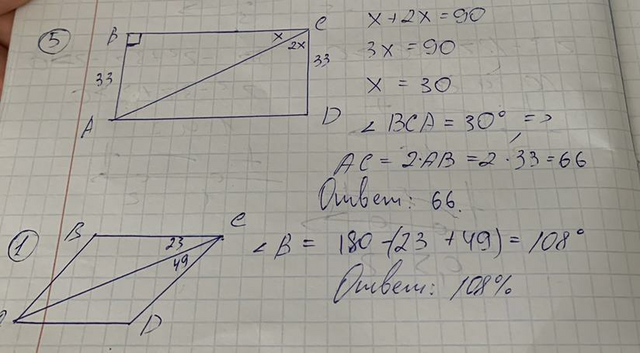 5
B C
x 2x
33 33
A D
x + 2x = 90
3x = 90
x = 30
∠ BCA = 30° =>
AC = 2·AB = 2·33 = 66
Ответ: 66.
1
B C
23
49
D
∠ B = 180 - (23 + 49) = 108°
Ответ: 108%